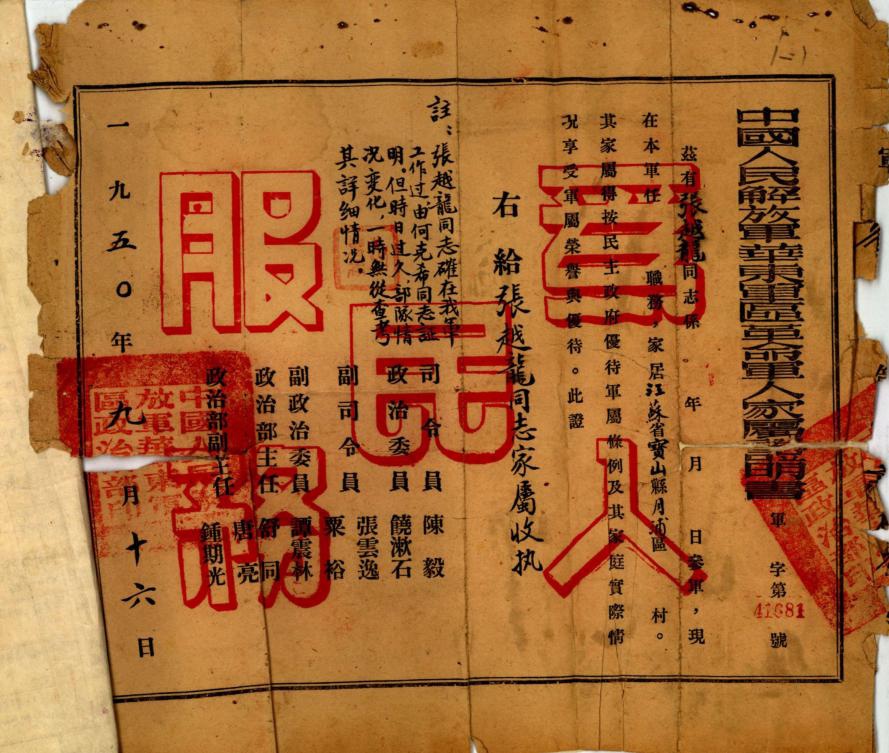 中國人民解放軍華東軍區革命軍人家屬證明書
軍 字第41681號
茲有張越龍同志係 年 月 日參軍,現
在本軍任 職務,家居江蘇省寶山縣月浦區 村。
其家屬得按民主政府優待軍屬條例及其家庭實際情
況享受軍屬榮譽與優待。此證
右給張越龍同志家屬收执
註:張越龍同志確在我軍
工作过,由何克希同志証
明。但時日过久部隊情
況变化,一時無從查考
其詳細情況。
司令員 陳毅
政治委員 饒漱石
張雲逸
副司令員 粟裕
副政治委員 譚震林
政治部主任 舒同
唐亮
政治部副主任 鍾期光
一九五〇年九月十六日
為人民服務